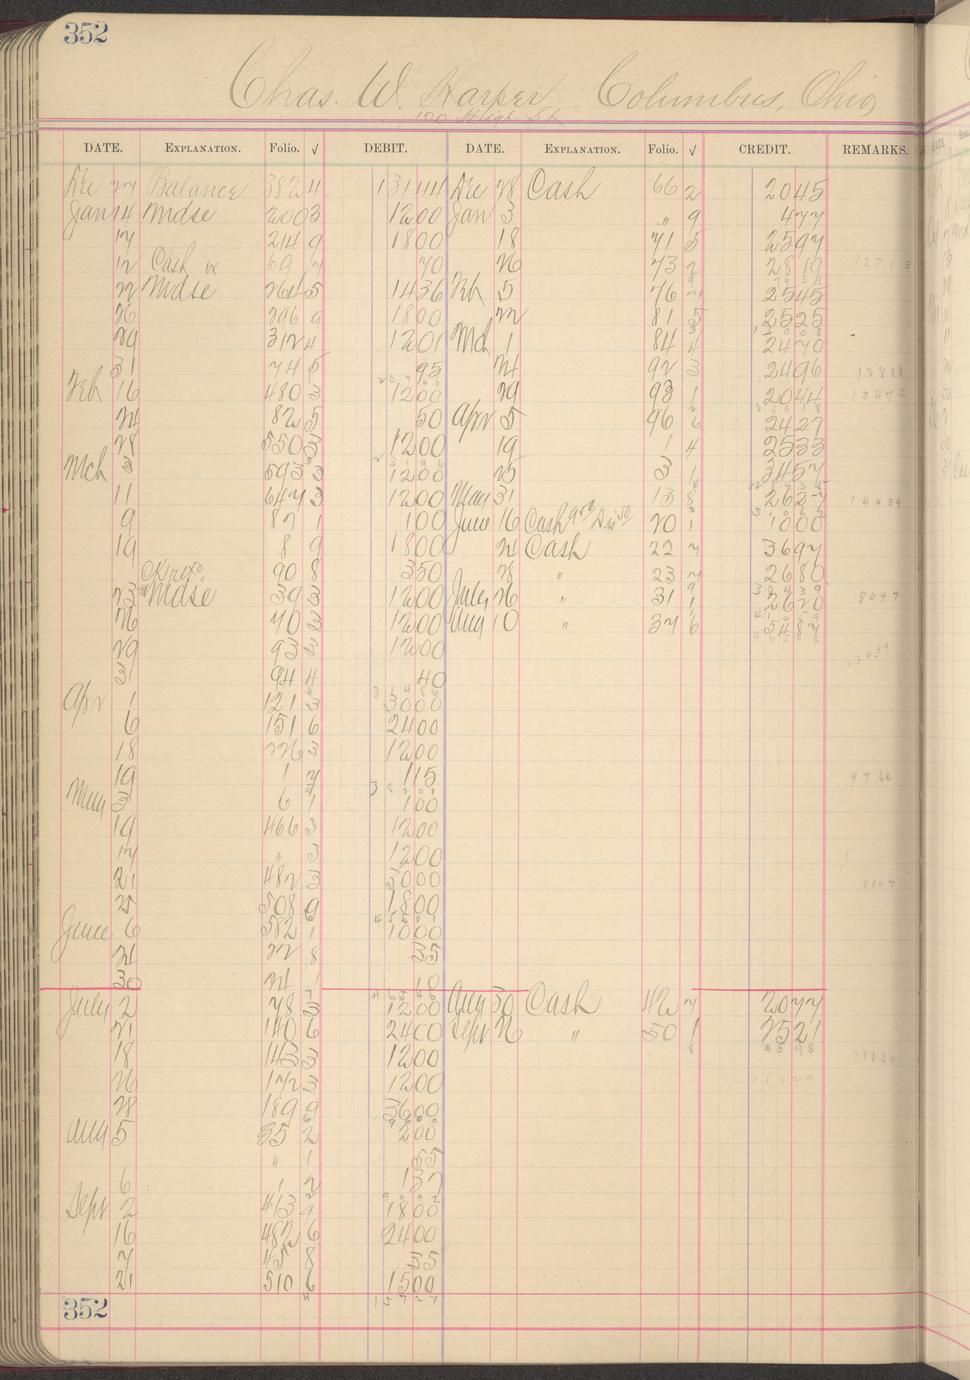 352
Chas. W. Harper Columbus, Ohio
120 High St
DATE. EXPLANATION. Folio. √ DEBIT. DATE. EXPLANATION. Folio. √ CREDIT. REMARKS.
Dec 27 Balance 382 4 13144 Dec 28 Cash 66 2 2045
Jan 14 Mdse 200 3 1200 Jan 3 " 9 477
17 214 9 1800 18 71 5 2597
12 Cash 69 7 70 26 73 2 2819
22 Mdse 264 5 1436 Feb 5 76 7 2545
26 296 9 1800 22 81 5 2525
29 312 4 1201 Mch 1 84 4 2470
31 74 5 95 24 92 3 2496 12808
Feb 16 480 3 1200 29 93 1 2044 13472
24 82 5 50 Apr 5 96 6 2427
28 550 3 1200 19 1 4 2533
Mch 3 593 3 1200 25 3 1 3457
11 647 3 1200 May 31 13 8 2627 14439
9 87 1 100 June 16 Cash 20 1 1000
19 8 9 1800 21 Cash 22 7 3697
90 8 350 28 " 23 7 2680
23 Mdse 39 3 1200 July 26 " 31 1 2620 8097
26 70 3 1200 Aug 10 " 37 6 5487
29 93 3 1200
31 94 4 40
Apr 1 121 3 3000
6 151 6 2400
18 226 3 1200
19 1 7 115
May 3 6 1 100
19 466 3 1200
17 " 3 1200
21 482 3 3000
25 508 9 1800
June 6 582 1 1000
21 22 8 35
30 24 1 10
July 2 78 3 1200 Aug 30 Cash 42 7 2077
21 140 6 2400 Sept 26 " 50 1 7521
18 143 3 1200 11129
26 172 3 1200
28 189 9 3600
Aug 5 35 2 200
" 1 55
6 1 2 137
Sept 2 413 9 1800
16 482 6 2400
7 45 8 55
21 510 6 1500
352